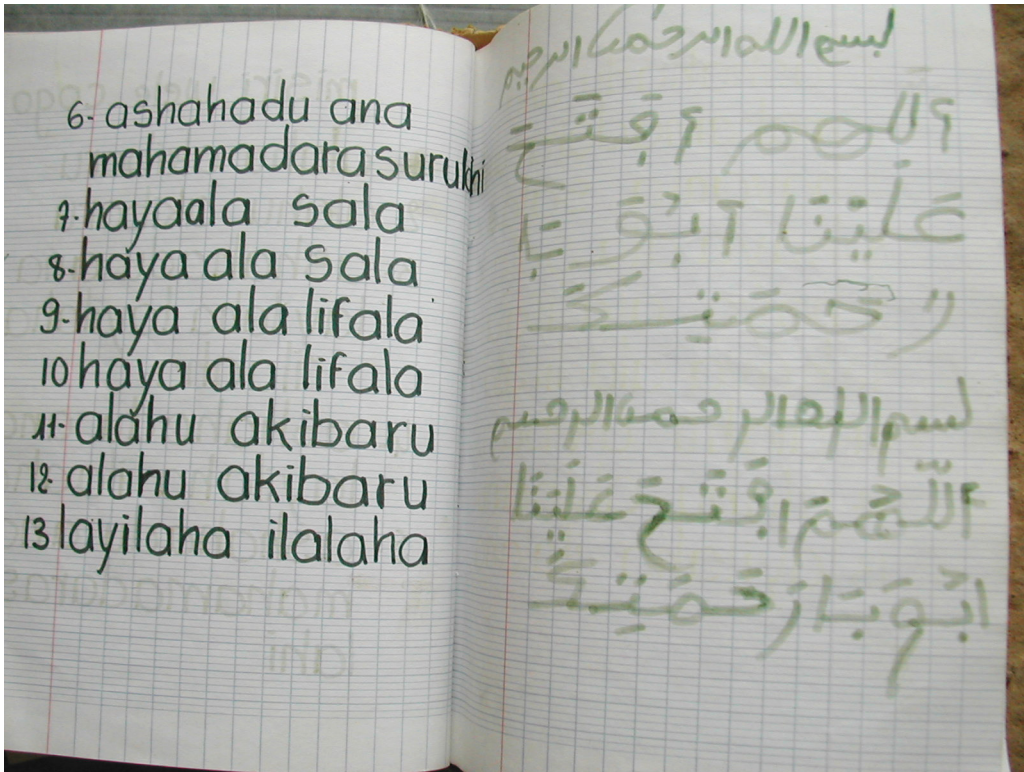 6. ashahadu ana
mahamadarasurukhi
7. hayaala sala
8. haya ala sala
9. haya ala lifala
10 haya ala lifala
11. alahu akibaru
12. alahu akibaru
13 layilaha ilalaha
بسم الله الرحمن الرحيم
اللهم افتح
علينا ابو با
رحمتيك
بسم الله الرحمن الرحيم
اللهم افتح علينا
ابوبا رحمتيك